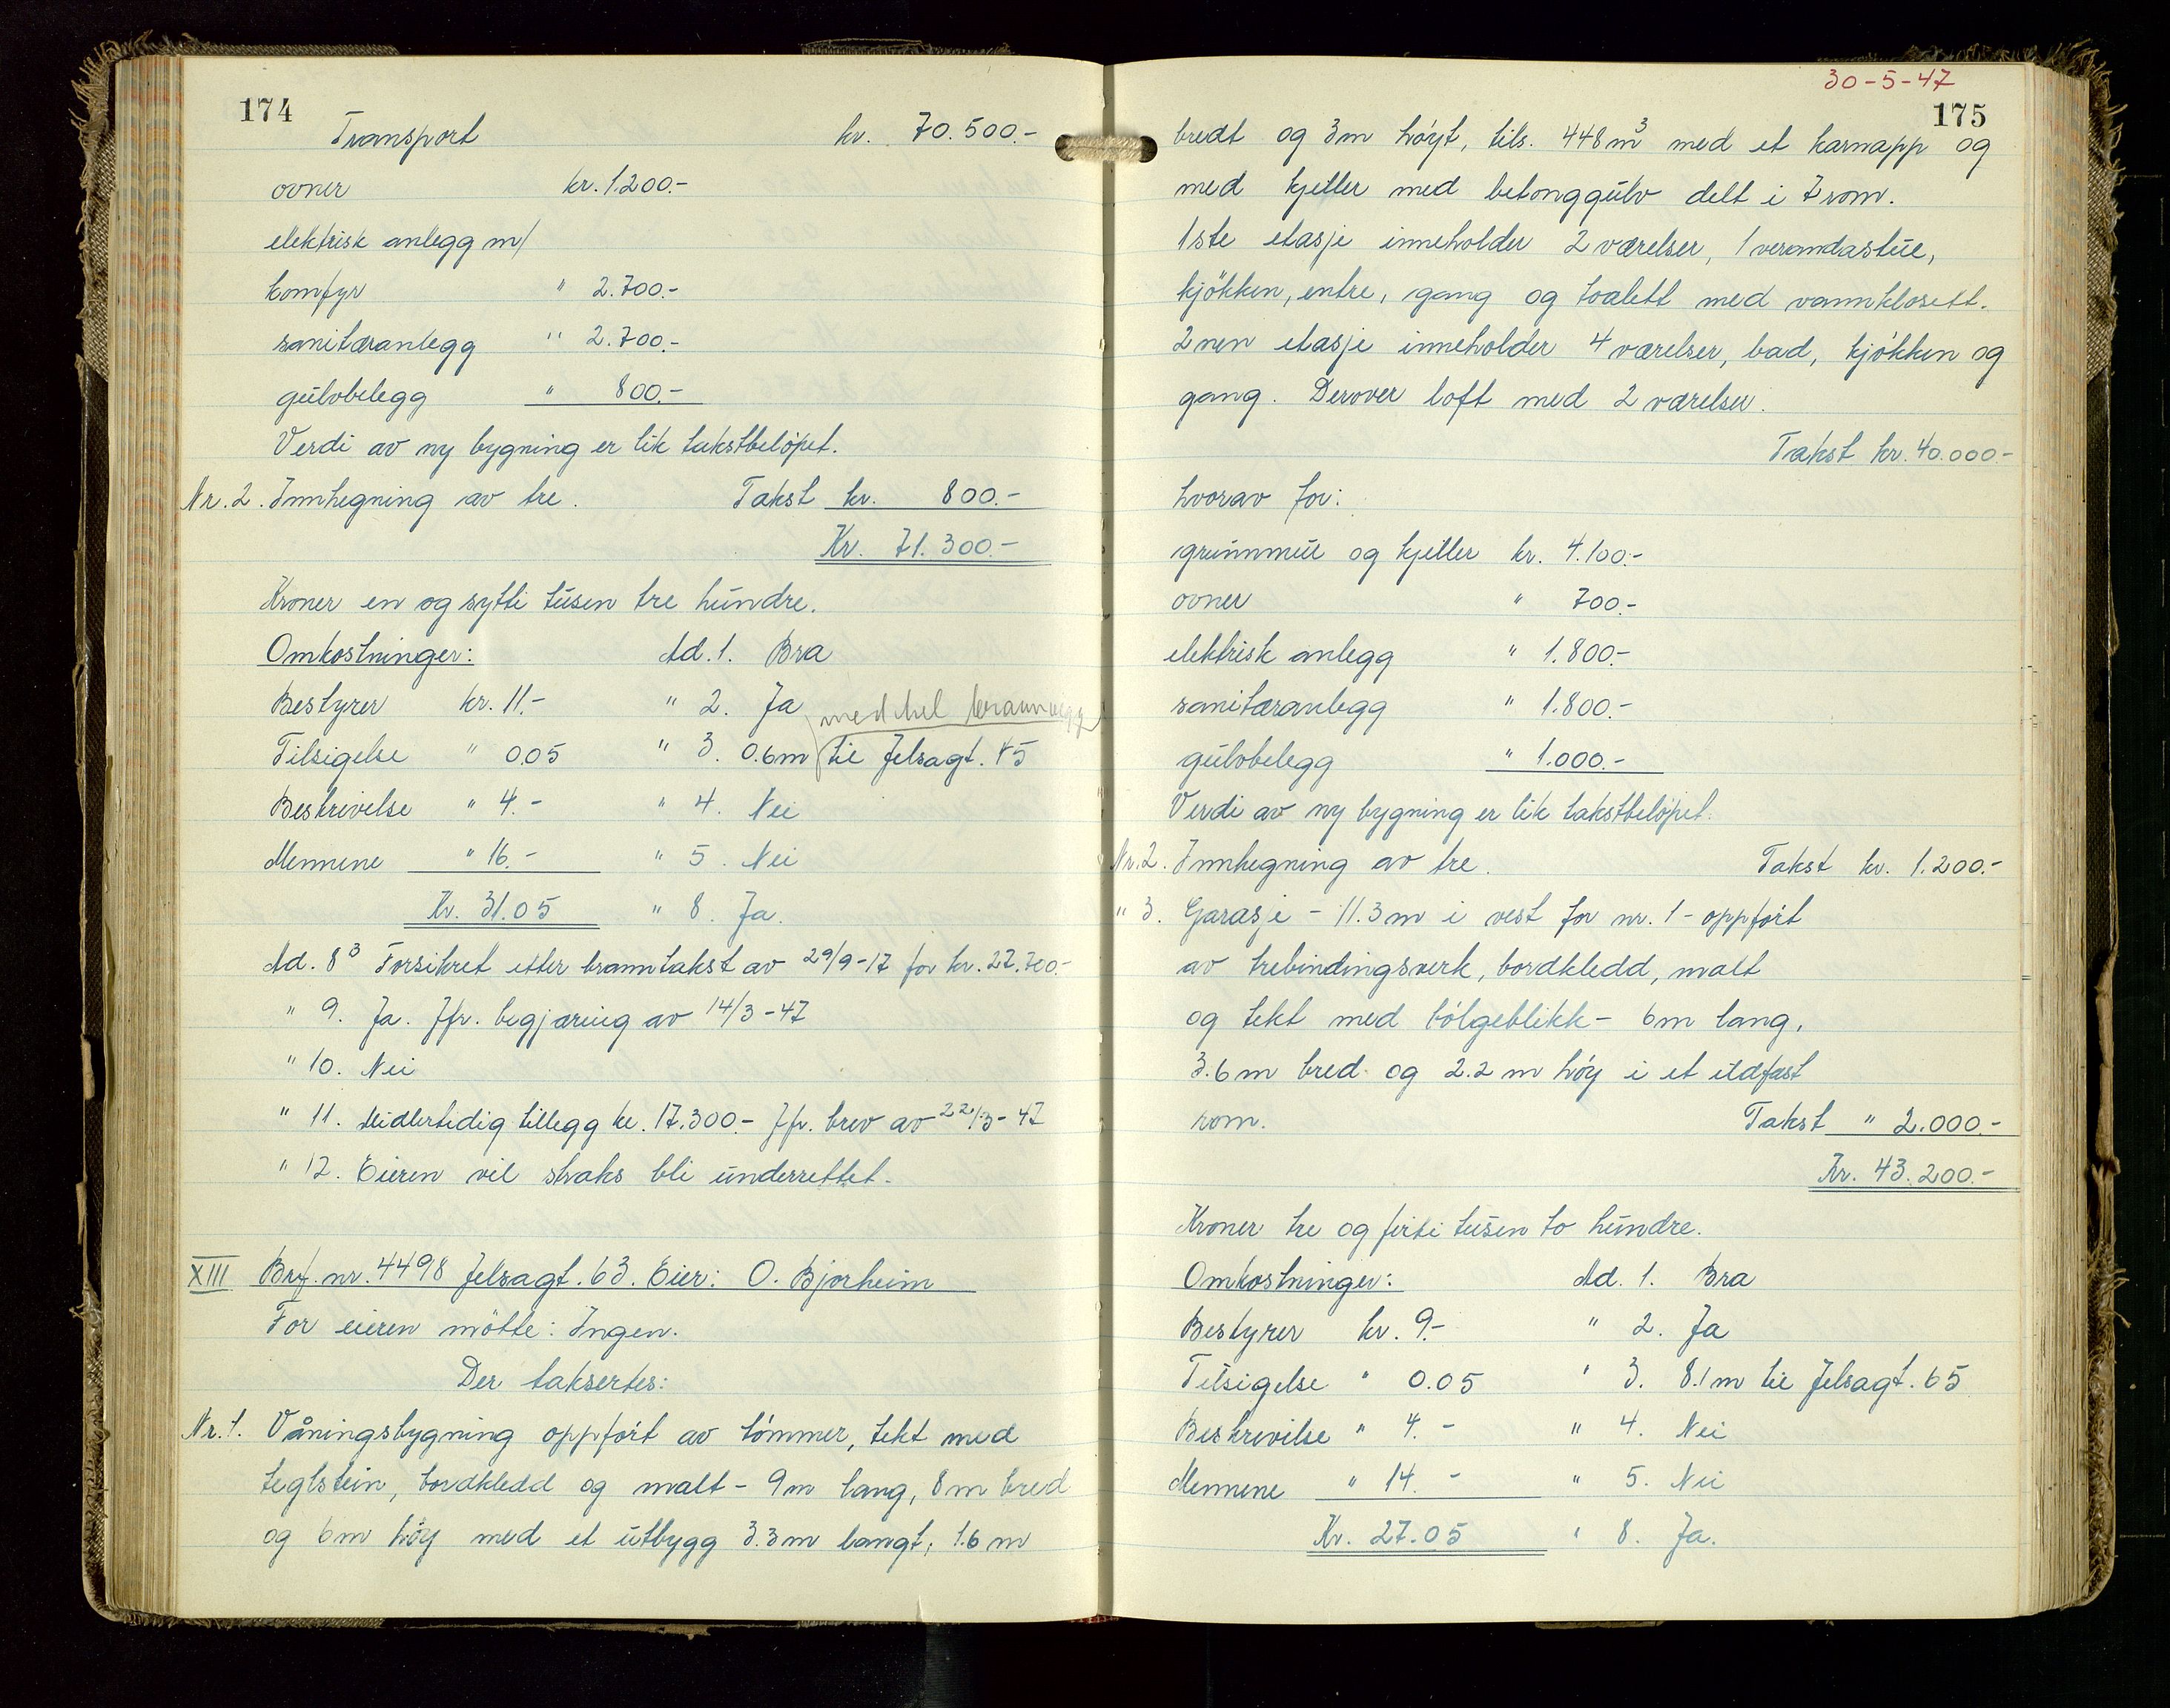 174
Transport kr. 70.500.-
ovner kr. 1.200.-
elektrisk anlegg m/
komfyr " 2.700.-
sanitæranlegg " 2.700.-
gulvbelegg " 800.-
Verdi av ny bygning er lik takstbeløpet.
Nr. 2. Innhegning av tre. Takst kr. 800.-
Kr. 71.300.-
Kroner en og sytti tusen tre hundre.
Omkostninger: Ad. 1. Bra
Bestyrer kr. 11.- " 2. Ja
med hel brannvegg
Tilsigelse " 0.05 " 3. 0.6m til Jelsagt. 45
Beskrivelse " 4.- " 4. Nei
Mennene " 16.- " 5. Nei
Kr. 31.05 " 8. Ja.
Ad. 8³ Forsikret etter branntakst av 29/9-17 for kr. 27.700.-
" 9. Ja. Jfr. begjæring av 14/3-47
" 10. Nei
" 11. Midlertidig tillegg kr. 17.300.- Jfr. brev av 22/3-47
" 12. Eieren vil straks bli underrettet.
XIII Brf. nr. 4498 Jelsagt. 63. Eier: O. Bjorheim
For eieren møtte: Ingen.
Der taksertes:
Nr. 1. Våningsbygning oppført av tømmer, tekt med
teglstein, bordkledd og malt - 9m lang, 8m bred
og 6m høy med et utbygg 3.3m langt, 1.6m
30-5-47
175
bredt og 3m høyt, tils. 448m³ med et karnapp og
med kjeller med betonggulv delt i 7 rom.
1ste etasje inneholder 2 værelser, 1 verandastue,
kjøkken, entre, gang og toalett med vannklosett.
2nen etasje inneholder 4 værelser, bad, kjøkken og
gang. Derover loft med 2 værelser.
Takst kr. 40.000-
hvorav for:
grunnmur og kjeller kr. 4.100.-
ovner " 700.-
elektrisk anlegg " 1.800.-
sanitæranlegg " 1.800.-
gulvbelegg " 1.000.-
Verdi av ny bygning er lik takstbeløpet.
Nr. 2. Innhegning av tre. Takst kr. 1.200.-
" 3. Garasje - 11.3m i vest for nr. 1 - oppført
av trebindingsverk, bordkledd, malt
og tekt med bølgeblikk - 6m lang,
3.6m bred og 2.2m høy i et ildfast
rom. Takst " 2.000.-
Kr. 43.200.-
Kroner tre og førti tusen to hundre.
Omkostninger: Ad. 1. Bra
Bestyrer kr. 9.- " 2. Ja
Tilsigelse " 0.05 " 3. 8.1m til Jelsagt. 65
Beskrivelse " 4.- " 4. Nei
Mennene " 14.- " 5. Nei
Kr. 27.05 " 8. Ja.